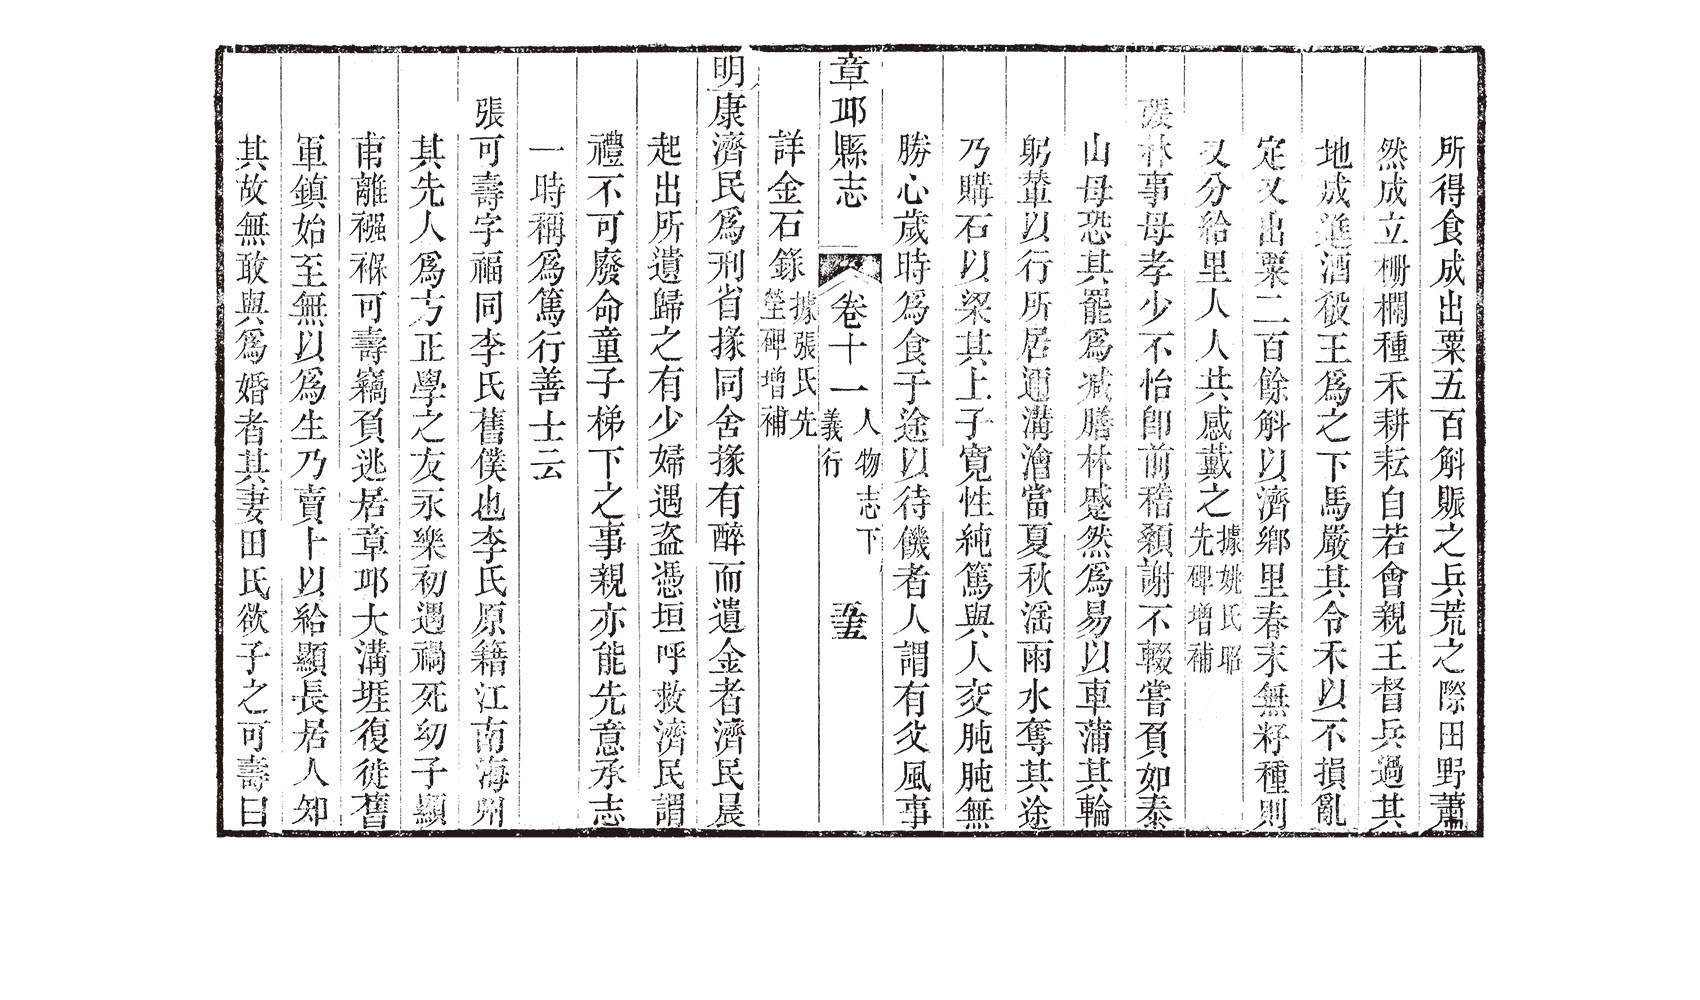 所得食成出粟五百斛賑之兵荒之際田野蕭
然成立柵欄種禾耕耘自若會親王督兵過其
地成進酒殽王爲之下馬嚴其令禾以不損亂
定又出粟二百餘斛以濟鄉里春末無籽種則
又分給里人人共感戴之據姚氏昭先碑增補
張林事母孝少不怡卽前稽顙謝不輟嘗負如泰
山母恐其罷爲減膳林蹙然爲易以車蒲其輪
躬輦以行所居通溝澮當夏秋滛雨水奪其途
乃購石以梁其上子寬性純篤與人交肫肫無
勝心歲時爲食于途以待饑者人謂有父風事
章邱縣志 卷十一 人物志下 義行 五十五
詳金石錄據張氏先塋碑增補
明康濟民爲刑省掾同舍掾有醉而遺金者濟民晨
起出所遺歸之有少婦遇盗憑垣呼救濟民謂
禮不可廢命童子梯下之事親亦能先意承志
一時稱爲篤行善士云
張可壽字福同李氏舊僕也李氏原籍江南海州
其先人爲方正學之友永樂初遇禍死幼子顯
甫離襁褓可壽竊負逃居章邱大溝堐復徙舊
軍鎮始至無以爲生乃賣卜以給顯長居人知
其故無敢與爲婚者其妻田氏欲子之可壽曰